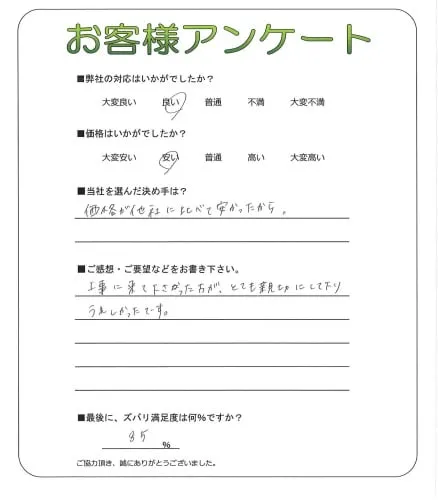 お客様アンケート
■弊社の対応はいかがでしたか？
大変良い 良い 普通 不満 大変不満
■価格はいかがでしたか？
大変安い 安い 普通 高い 大変高い
■当社を選んだ決め手は？
価格が他社に比べて安かったから。
■ご感想・ご要望などをお書き下さい。
工事に来て下さった方が、とても親切にして下り
うれしかったです。
■最後に、ズバリ満足度は何%ですか？
85 %
ご協力頂き、誠にありがとうございました。